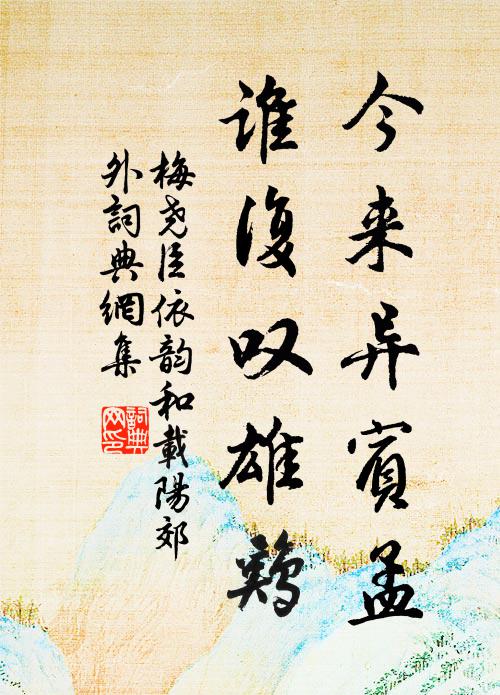 今来异賓孟
谁復叹雄鷄
梅尧臣依韵和載陽郊
外詞典網集
詞典
网印